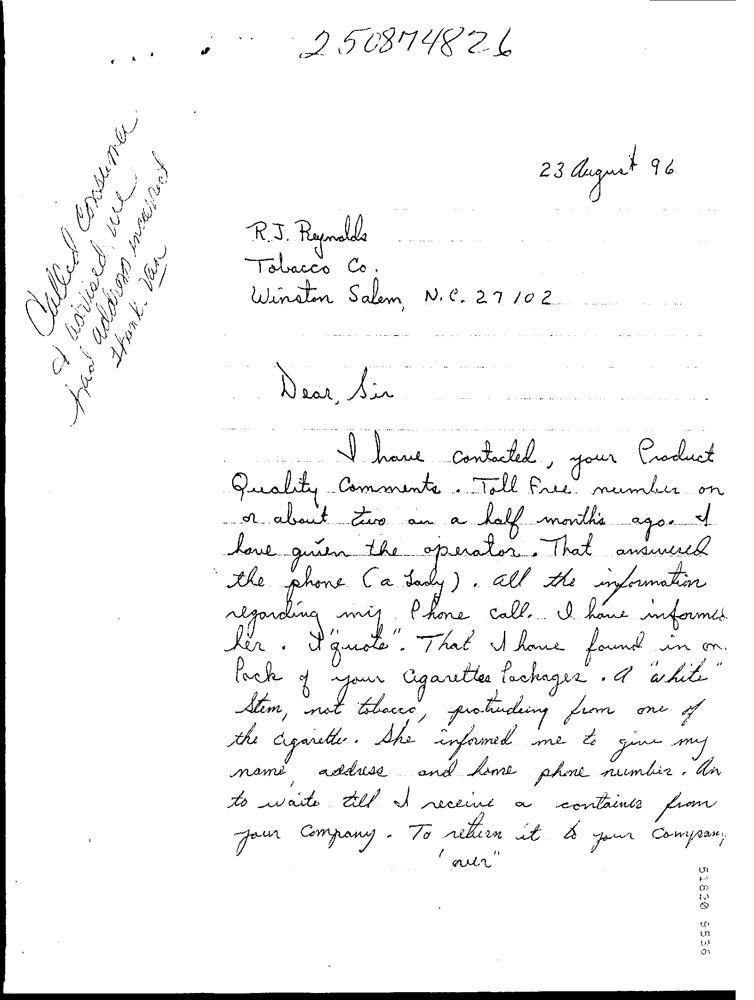 250874826
Called Consumer
& advised, we
had address incorrect
Thank. Van
23 August 96
R.J. Reynolds
Tobacco Co.
Winston Salem, N.C. 27102
Dear, Sir
I have contacted, your Product
Quality Comments. Toll Free number on
or about two an a half month's ago. I
have guien the operator. That answered
the phone (a Lady). All the information
regarding my Phone call. I have informed
her. I "quote". That I have found in on
Pack of your Cigarettes Packages. A "white"
Stem, not tobacco, protruding from one of
the Cigarette. She informed me to give my
name, address and home phone number. An
to waite till I receive a container from
your Company. To return it to your Company
"over"
51820 9536